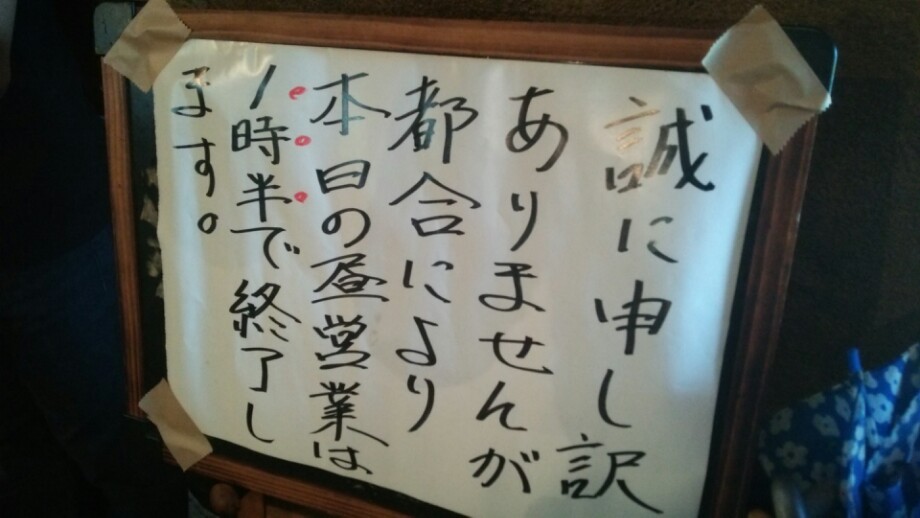 誠に申し訳
ありませんが
都合により
本日の昼営業は
1時半で終了し
ます。